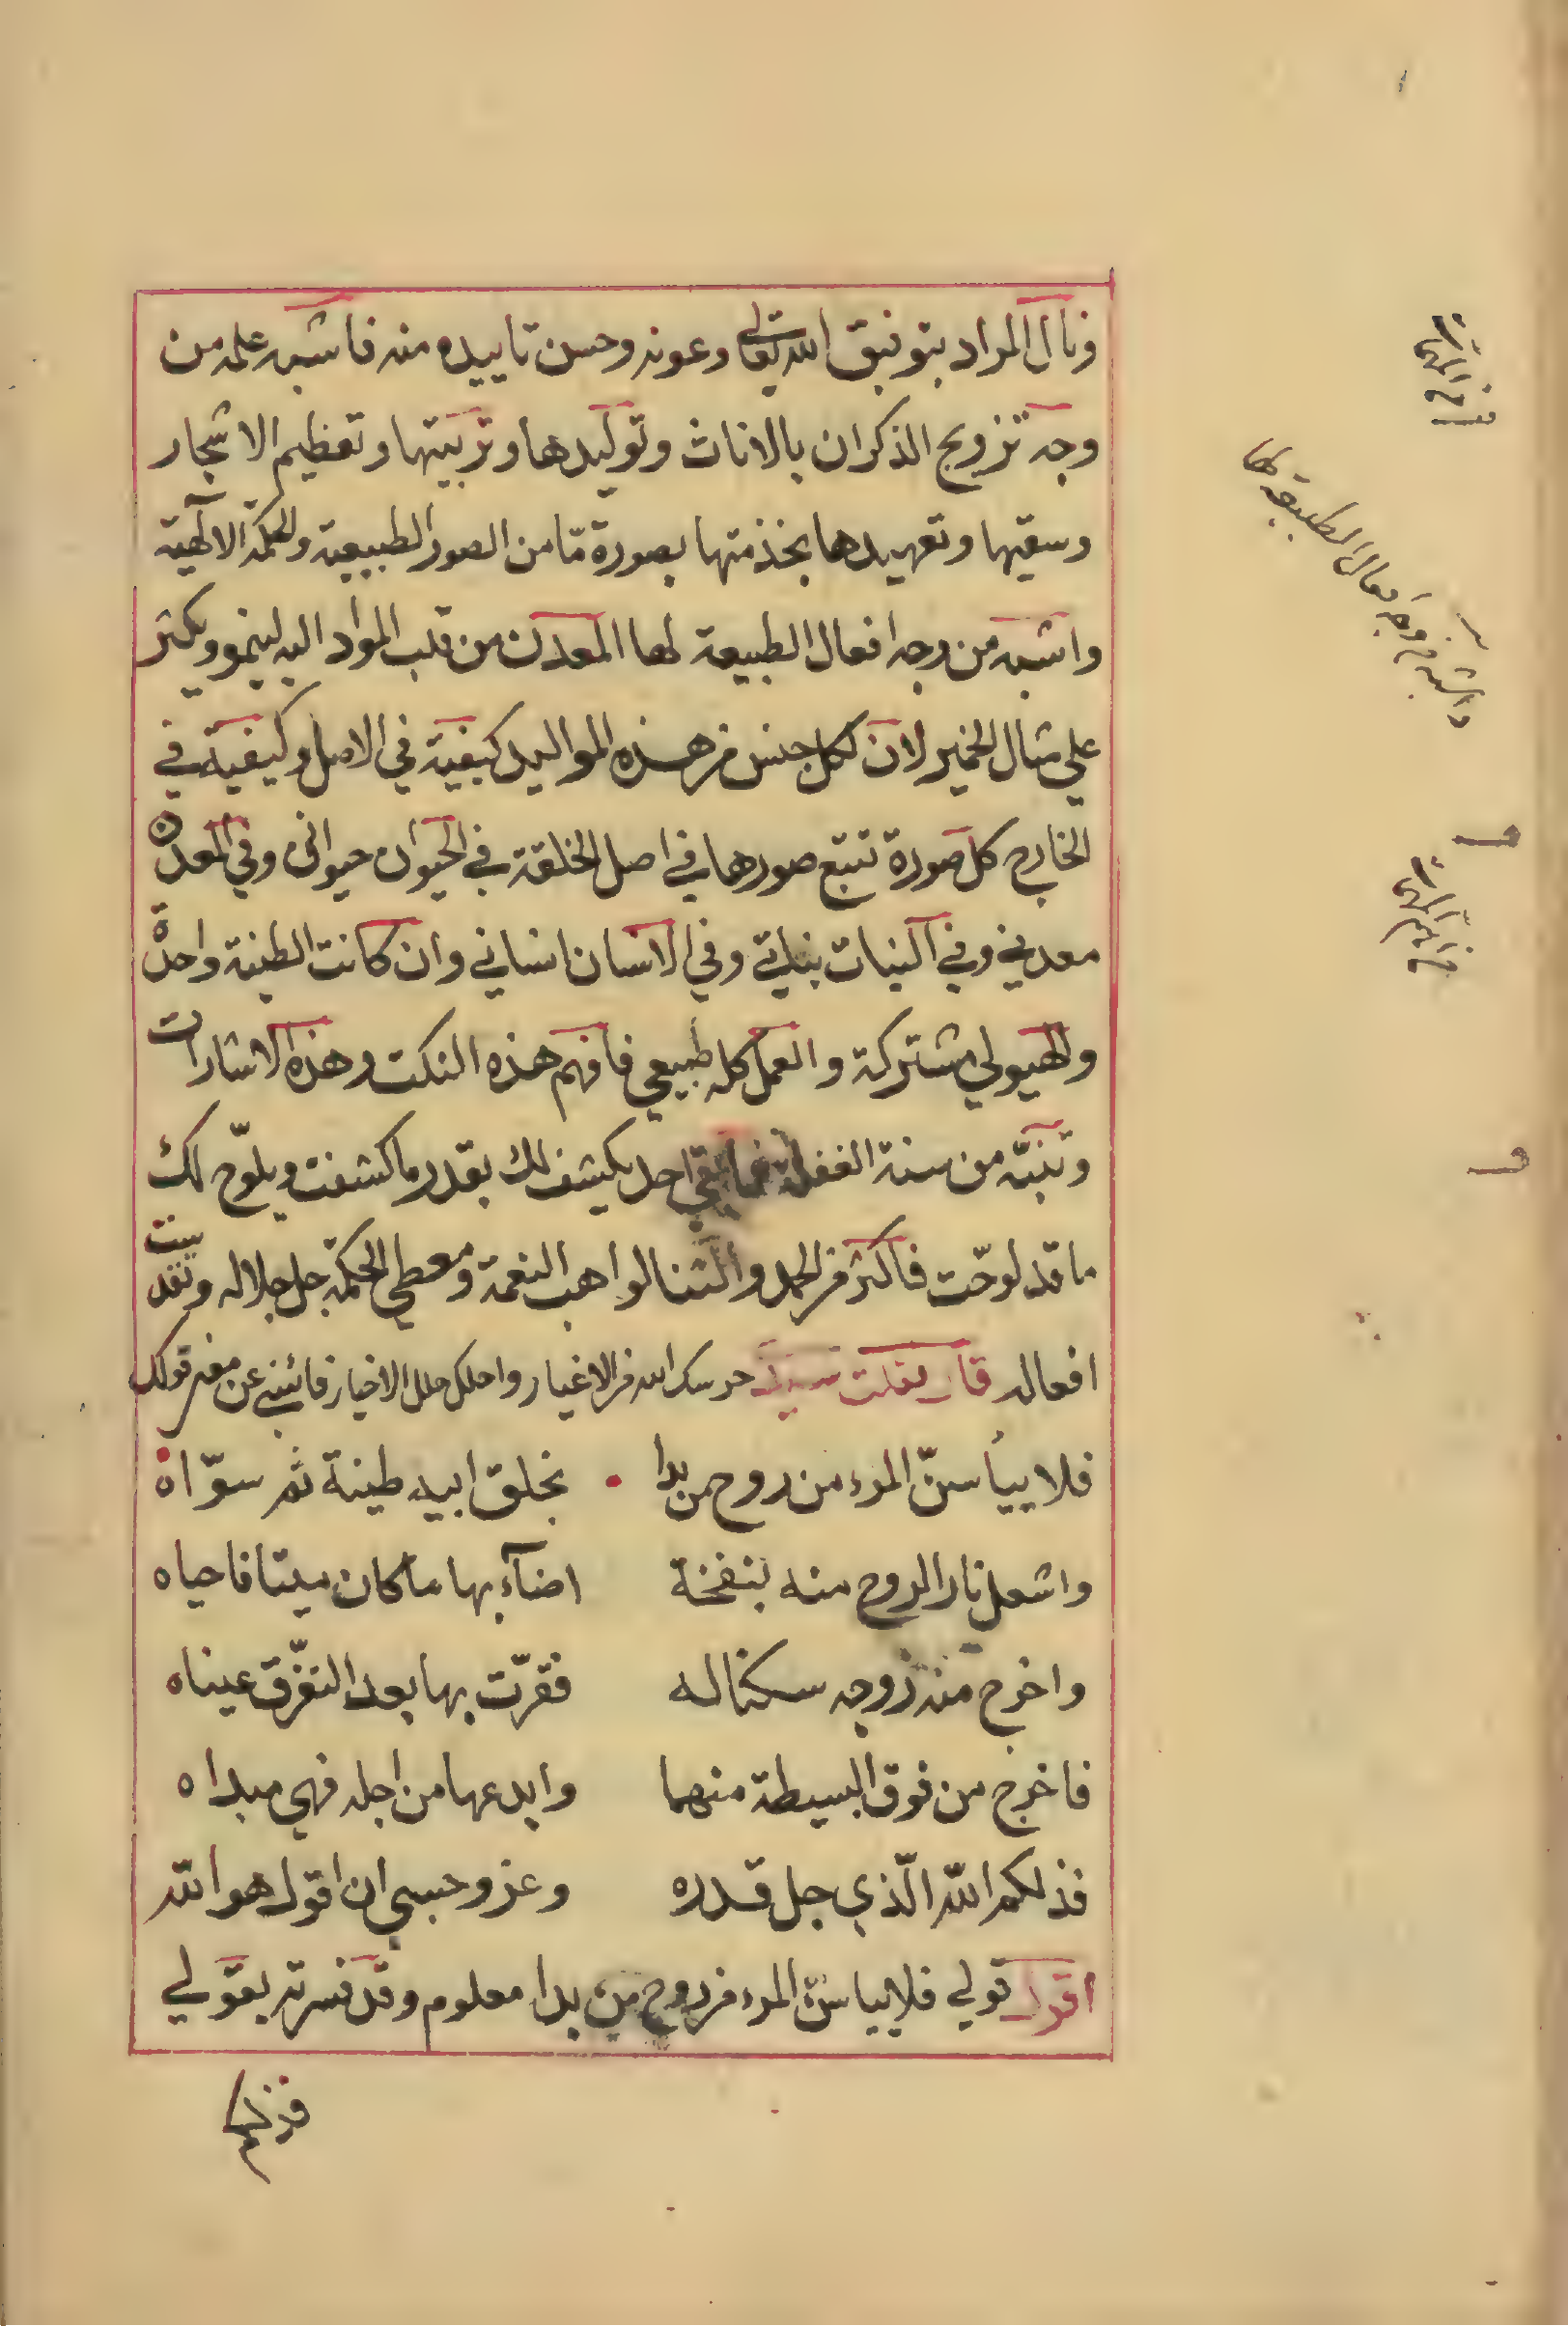 ونال المراد بتوفيق الله تعالى وعونه وحسن تاييده منه فاشبه علمه من
وجه تزويج الذكران بالاناث وتوليدها وتربيتها وتعظيم الاشجار
وسقيها وتعهيدها بخذمتها بصورة مّا من الصور الطبيعية والحكمة الالٓهية
واشبه من وجه افعال الطبيعة لها المعدن من قلب المواد اليه لينمو ويكثر
علي مثال الخمير لان لكل جنس من هذه المواليد كيفية في الاصل وكيفية في
الخارج كل صورة تتبع صورها في اصل الخلقة في الحيوان حيواني وفي المعدن
معدني وفي النبات نباتي وفي الانسان انساني وان كانت الطينة واحدة
والهيولي مشتركة والعمل كله طبيعي فافهم هذه النكت وهذه الاشارات
وتنبّه من سنة الغفلة فما بقي احد يكشف لك بقدر ما كشفت ويلوّح لك
ما قد لوحّت فاكثر من الحمد والثنا لواهب النعمة ومعطي الحكمة جل جلاله وتقدست
افعاله قال فقلت سيدي حرسك الله من الاغيار واحلك محلل الاخيار فائبني عن معني قولك
فلا ييأسنّ المرء من روح من بدا . بخلق ابيه طينة ثم سوّاه
واشعل نار الروح منه بنفخة اضآء بها ما كان ميتا فاحياه
واخرج منه زوجه سكنا له فقرّت بها بعد التفرّق عيناه
فاخرج من فوق البسيطة منهما وابدعها من اجله فهي مبداه
فذلكم اللّه الّذي جل قدره وعز وحسبي ان اقول هو اللّه
اقول قولي فلا يياسنّ المرء من روح من بدا معلوم وقد فسرته بقولي
فذلكم
واشبه من وجه افعال الطبيعة لها